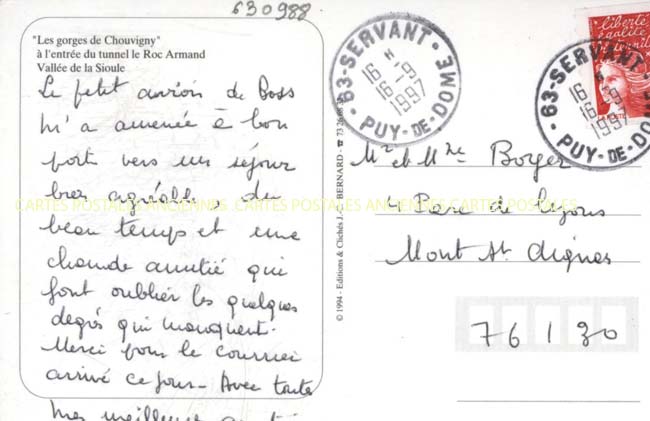 630988
"Les gorges de Chouvigny"
à l'entrée du tunnel le Roc Armand
Vallée de la Sioule
Le petit avion de Boss
m'a amenée à bon
port vers un séjour
bien agréable, du
beau temps et une
chaude amitié qui
font oublier les quelques
degrés qui manquent.
Merci pour le courrier
arrivé ce jour - Avec toute
© 1994 - Editions & Clichés J. BERNARD - ☎ 73
63-SERVANT
16 H
16-9
1997
PUY-DE-DOME
liberté
égalité
63-SERVANT
16 H
16-9
1997
PUY-DE-DOME
Mr et Mme Boyer
4 Parc de
Mont St Aignan
76130
CARTES POSTALES ANCIENNES CARTES POSTALES ANCIENNES CARTES POSTALES ANCIENNES